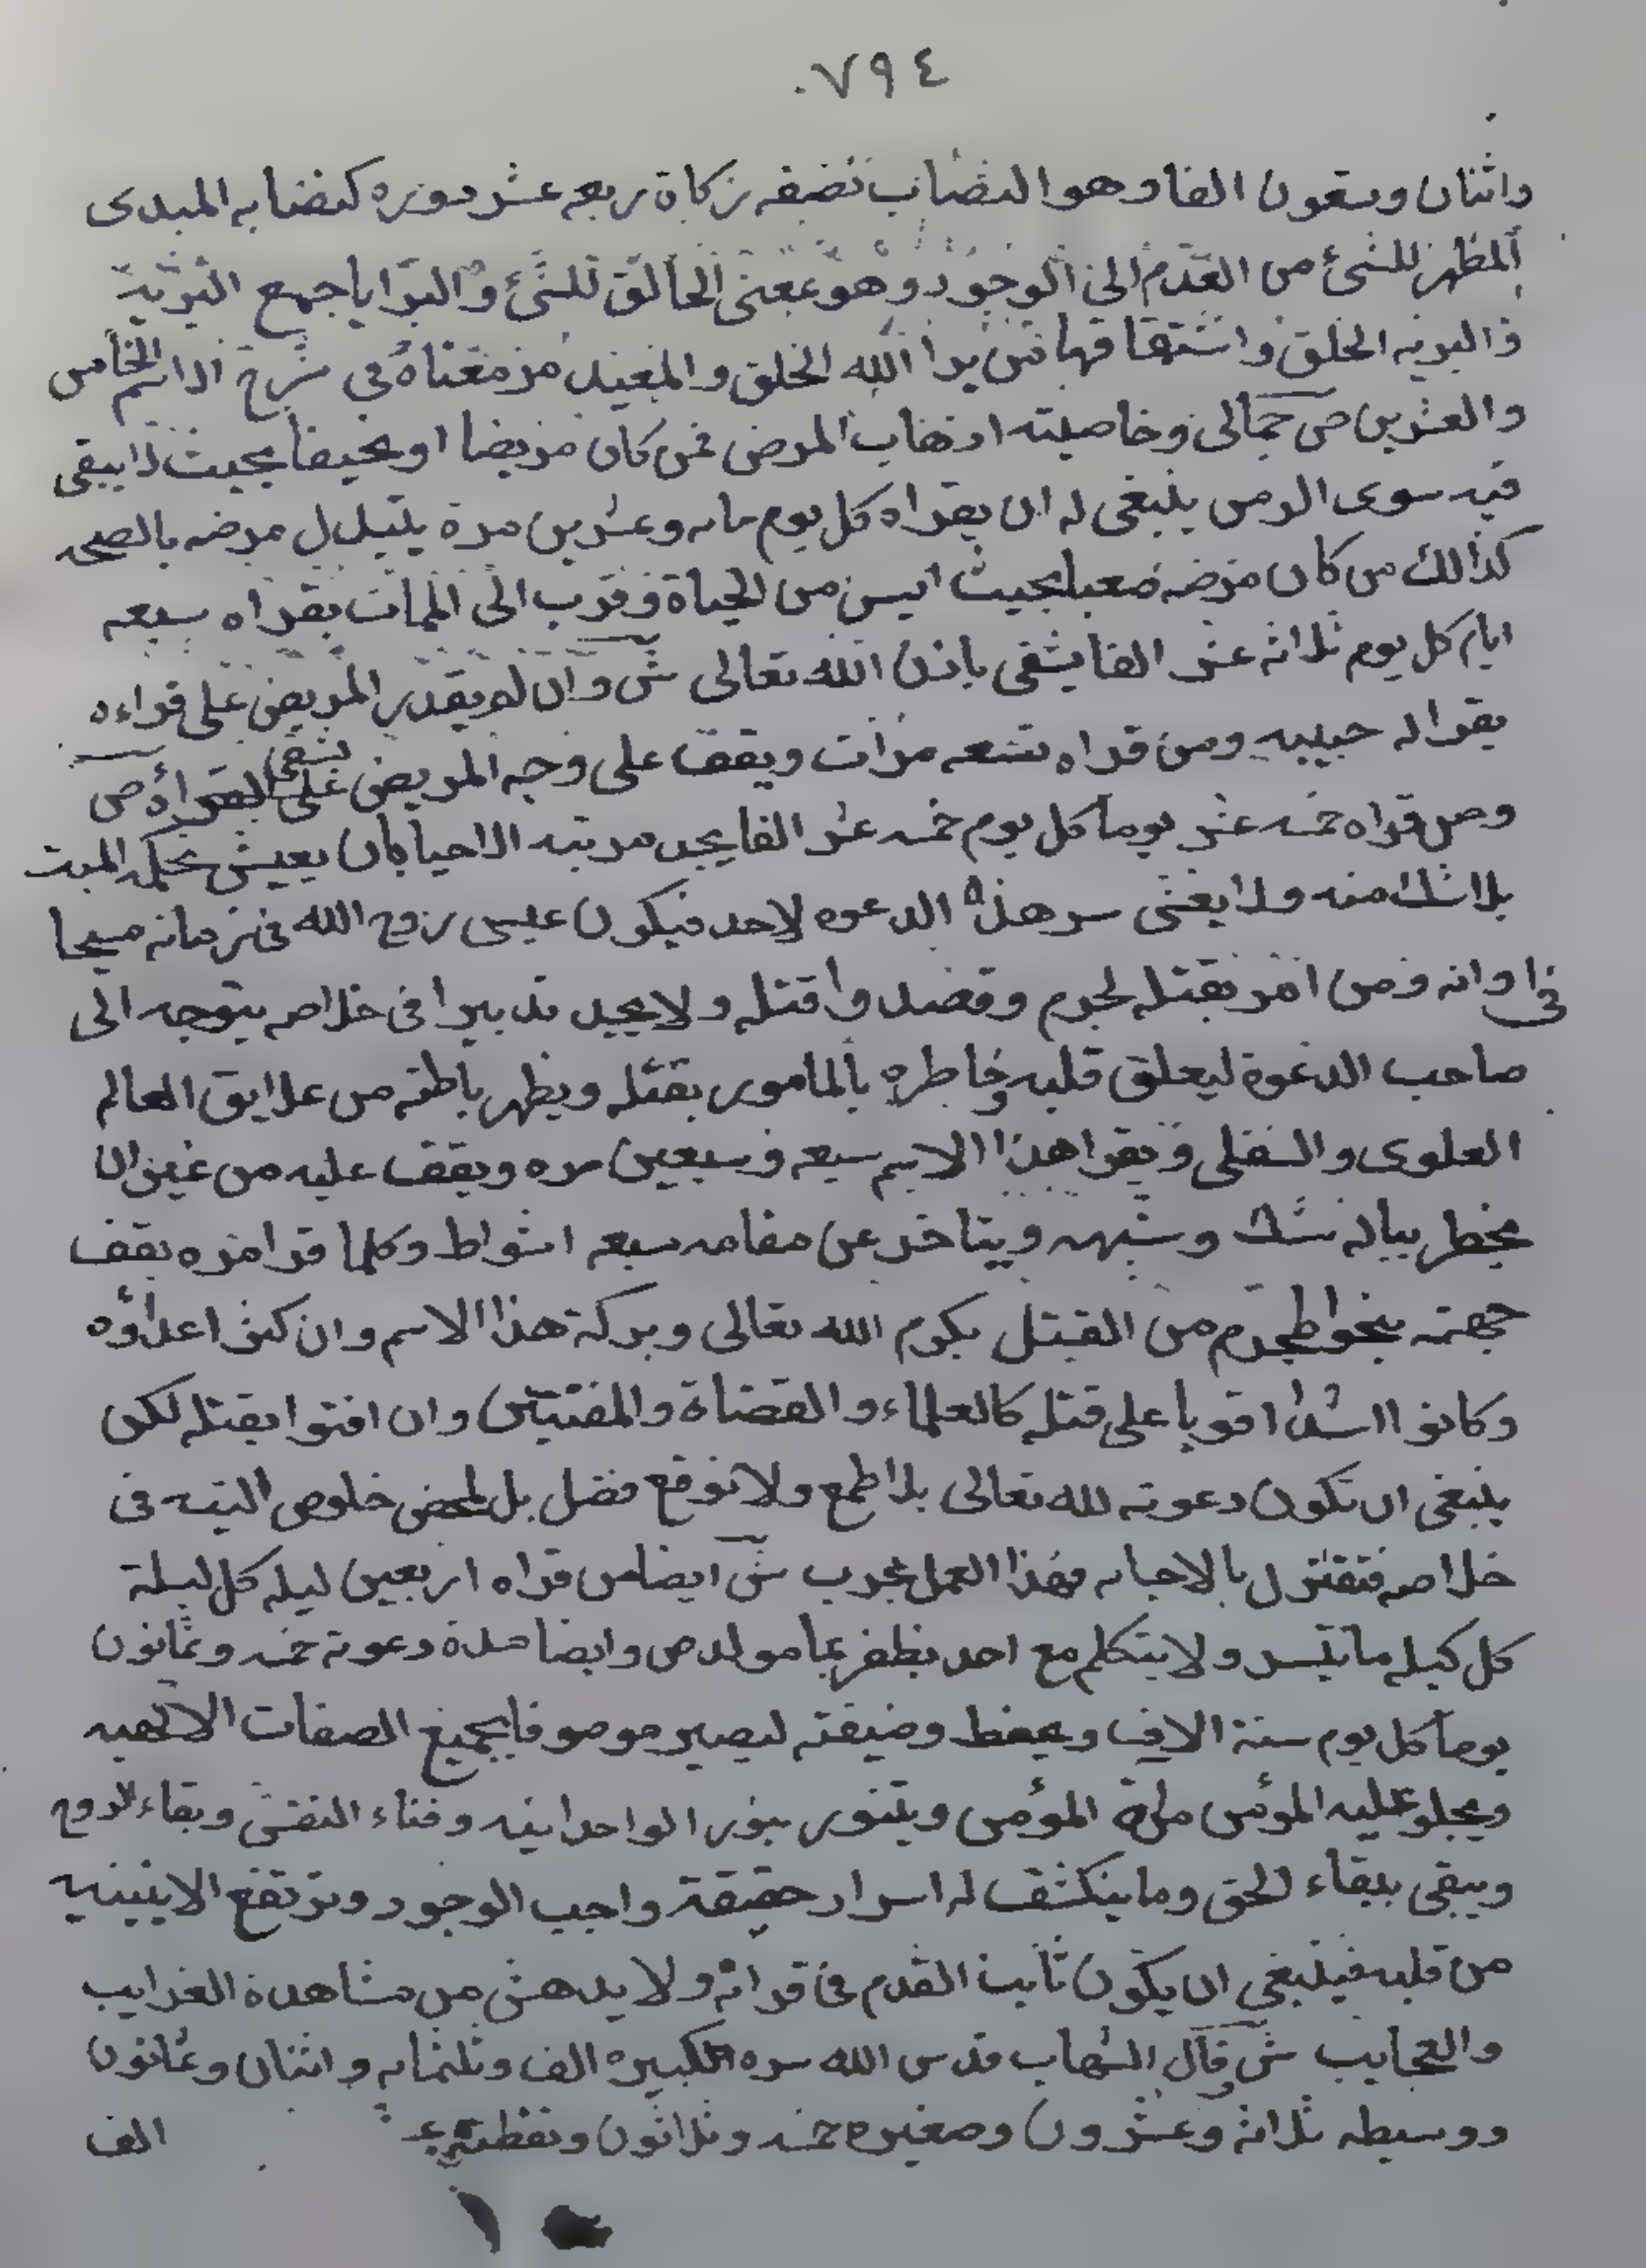 ٧٩٤
واثنان وسعون الفا وهو النصاب نصفه زكاة ربعه عشر دوره كنصابه المبدى
المظهر للشئ من العدم الى الوجود وهو بمعنى الخالق للشئ والبرايا جمع البرية
والبريه الخلق واشتقاقها من برا الله الخلق والمعيد مر معناه في شرح الاسم الخامس
والعشرين ص جمالى وخاصيته اذهاب المرض فمن كان مريضا او نحيفا بحيث لا يبقى
فيه سوى الرمس ينبغى له ان يقراه كل يوم مايه وعشرين مرة يتبدل مرضه بالصحه
كذالك من كان مرضه صعبا بحيث ايس من الحياة وقرب الى الممات يقراه سبعه
ايام كل يوم ثلاثه عشر الفا يشفى باذن الله تعالى ش وان لم يقدر المريض على قراءه
يقرا له حبيبه ومن قراه تسعه مرات ويقف على وجه المريض يشفى على القراءه ص
ومن قراه خمسه عشر يوما كل يوم خمسه عشر الفا يجد مرتبه الاحيا بان يعيش بحكمه الميت
بلا شك منه ولا يفشى سر هذه الدعوه لاحد فيكون عيسى روح الله فى زمانه مسيحا
فى اوانه ومن امر بقتله لجرم وقصدوا قتله ولا يجد تدبيرا فى خلاصه يتوجه الى
صاحب الدعوة ليعلق قلبه وخاطره بالمامور بقتله ويطهر باطنه من علايق العالم
العلوى والسفلى ويقرا هذا الاسم سبعه وسبعين مره ويقف عليه من غير ان
يخطر بباله شك وشبهه ويتاخر عن مقامه سبعه اشواط وكلما قرا مره يقف
جهته ينجوا من القتل بكرم الله تعالى وبركة هذا الاسم وان كثر اعداؤه
وكانوا اشدا اقويا على قتله كالعلماء والقضاة والمفتيين وان افتوا بقتله لكن
ينبغى ان تكون دعوته لله تعالى بلا طمع ولا توقع فضل بل لمحض خلوص النيه فى
خلاصه فتقترن بالاجابه فهذا العمل مجرب ش ايضا من قراه اربعين ليله كل ليلة
كل كيله ما تيسر ولا يتكلم مع احد يظفر بما مولده ص وايضا مدة دعوته خمسه وثمانون
يوما كل يوم ستة الاف ويحفظ وضيفته ليصير موصوفا بجميع الصفات الالهيه
ويجلو عليه المؤمن مراة المؤمن ويتنور بنور الواحدانيه وفناء النفس وبقاء الروح
ويبقى ببقاء الحق وما ينكشف له اسرار حقيقة واجب الوجود وترتفع الاثنينيه
من قلبه فينبغى ان يكون ثابت القدم فى قراته ولا يدهش من مشاهدة الغرايب
والعجايب ش وقال الشهاب قدس الله سره الكبيره الف وثلثمايه واثنان وثمانون
ووسيطه ثلاثه وعشرون وصغيره خمسه وثلاثون ونقطته
الف